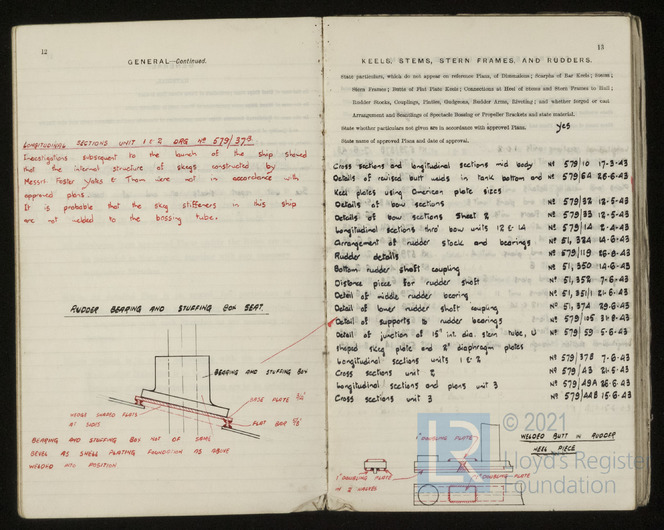 12
GENERAL—Continued.
LONGITUDINAL SECTIONS UNIT 1 & 2 DRG Nº 579/37B
Investigations subsequent to the launch of the ship showed
that the internal structure of skegs constructed by
Messrs Foster Yates & Thom were not in accordance with
approved plans.
It is probable that the skeg stiffeners in this ship
are not welded to the bossing tube.
RUDDER BEARING AND STUFFING BOX SEAT.
BEARING AND STUFFING BOX
BASE PLATE
WEDGE SHAPED FLATS
AT SIDES
FLAT BAR
BEARING AND STUFFING BOX NOT OF SAME
BEVEL AS SHELL PLATING FOUNDATION AS ABOVE
WELDED INTO POSITION
13
KEELS, STEMS, STERN FRAMES, AND RUDDERS.
State particulars, which do not appear on reference Plans, of Dimensions; Scarphs of Bar Keels; Stems;
Stern Frames; Butts of Flat Plate Keels; Connections at Heel of Stems and Stern Frames to Hull;
Rudder Stocks, Couplings, Pintles, Gudgeons, Rudder Arms, Riveting; and whether forged or cast
Arrangement and Scantlings of Spectacle Bossing or Propeller Brackets and state material.
State whether particulars not given are in accordance with approved Plans. Yes
State name of approved Plans and date of approval.
Cross sections and longitudinal sections mid body Nº 579/10 17-3-43
Details of revised butt welds in tank bottom and Nº 579/6A 26-6-43
Keel plates using American plate sizes
Details of bow sections Nº 579/32 12-5-43
Details of bow sections Sheet 2 Nº 579/33 12-5-43
Longitudinal sections thro' bow units 12 & 14 Nº 579/14 2-4-43
Arrangement of rudder stock and bearings Nº 51,32A 14-6-43
Rudder details Nº 579/119 26-8-43
Bottom rudder shaft coupling Nº 51,350 14-6-43
Distance piece for rudder shaft Nº 51,352 7-6-43
Detail of middle rudder bearing Nº 51,351/1 21-6-43
Detail of lower rudder shaft coupling Nº 51,374 29-6-43
Detail of supports to rudder bearings Nº 579/105 31-8-43
Detail of junction of 15" int. dia. stern tube, U Nº 579/59 5-6-43
shaped skeg plate and 2" diaphragm plates
Longitudinal sections units 1 & 2 Nº 579/37B 7-6-43
Cross sections unit 2 Nº 579/43 21-5-43
Longitudinal sections and plans unit 3 Nº 579/49A 26-6-43
Cross sections unit 3 Nº 579/44B 15-6-43
1" DOUBLING PLATE
WELDED BUTT IN RUDDER
HEEL PIECE
1" DOUBLING PLATE
IN 2 HALVES
DOUBLING PLATE
LR
© 2021
Lloyd's Register
Foundation